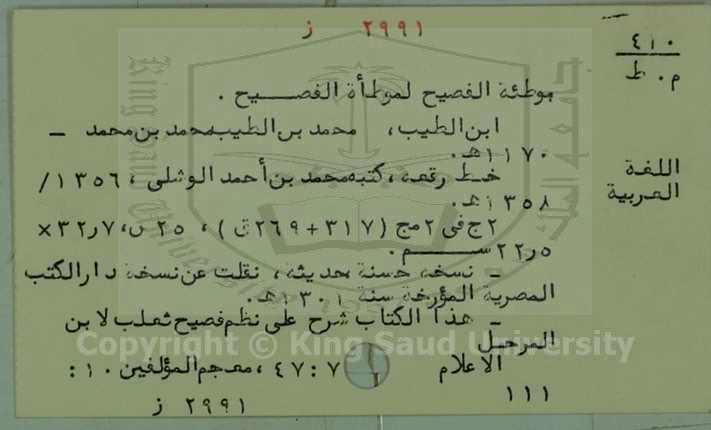 ٢٩٩١ ز
٤١٠
م . ط
موطئة الفصيح لموطأة الفصيح .
ابن الطيب ، محمد بن الطيب محمد بن محمد –
١١٧٠هـ.
خط رقعة ، كتبه محمد بن أحمد الوشلي ، ١٣٥٦/
١٣٥٨هـ.
اللغة
العربية
٢ج في ٢مج (٣١٧+٢٦٩ق) ، ٢٥ س ، ٣٢ر٧×
٢٢ر٥ سم .
– نسخة حسنة حديثة ، نقلت عن نسخة دار الكتب
المصرية المؤرخة سنة ١٣٠١هـ.
– هذا الكتاب شرح على نظم فصيح ثعلب لابن
المرحل
الاعلام ٧ : ٤٧ ، معجم المؤلفين ١٠ :
١١١
٢٩٩١ ز
Copyright © King Saud University
King Saud University